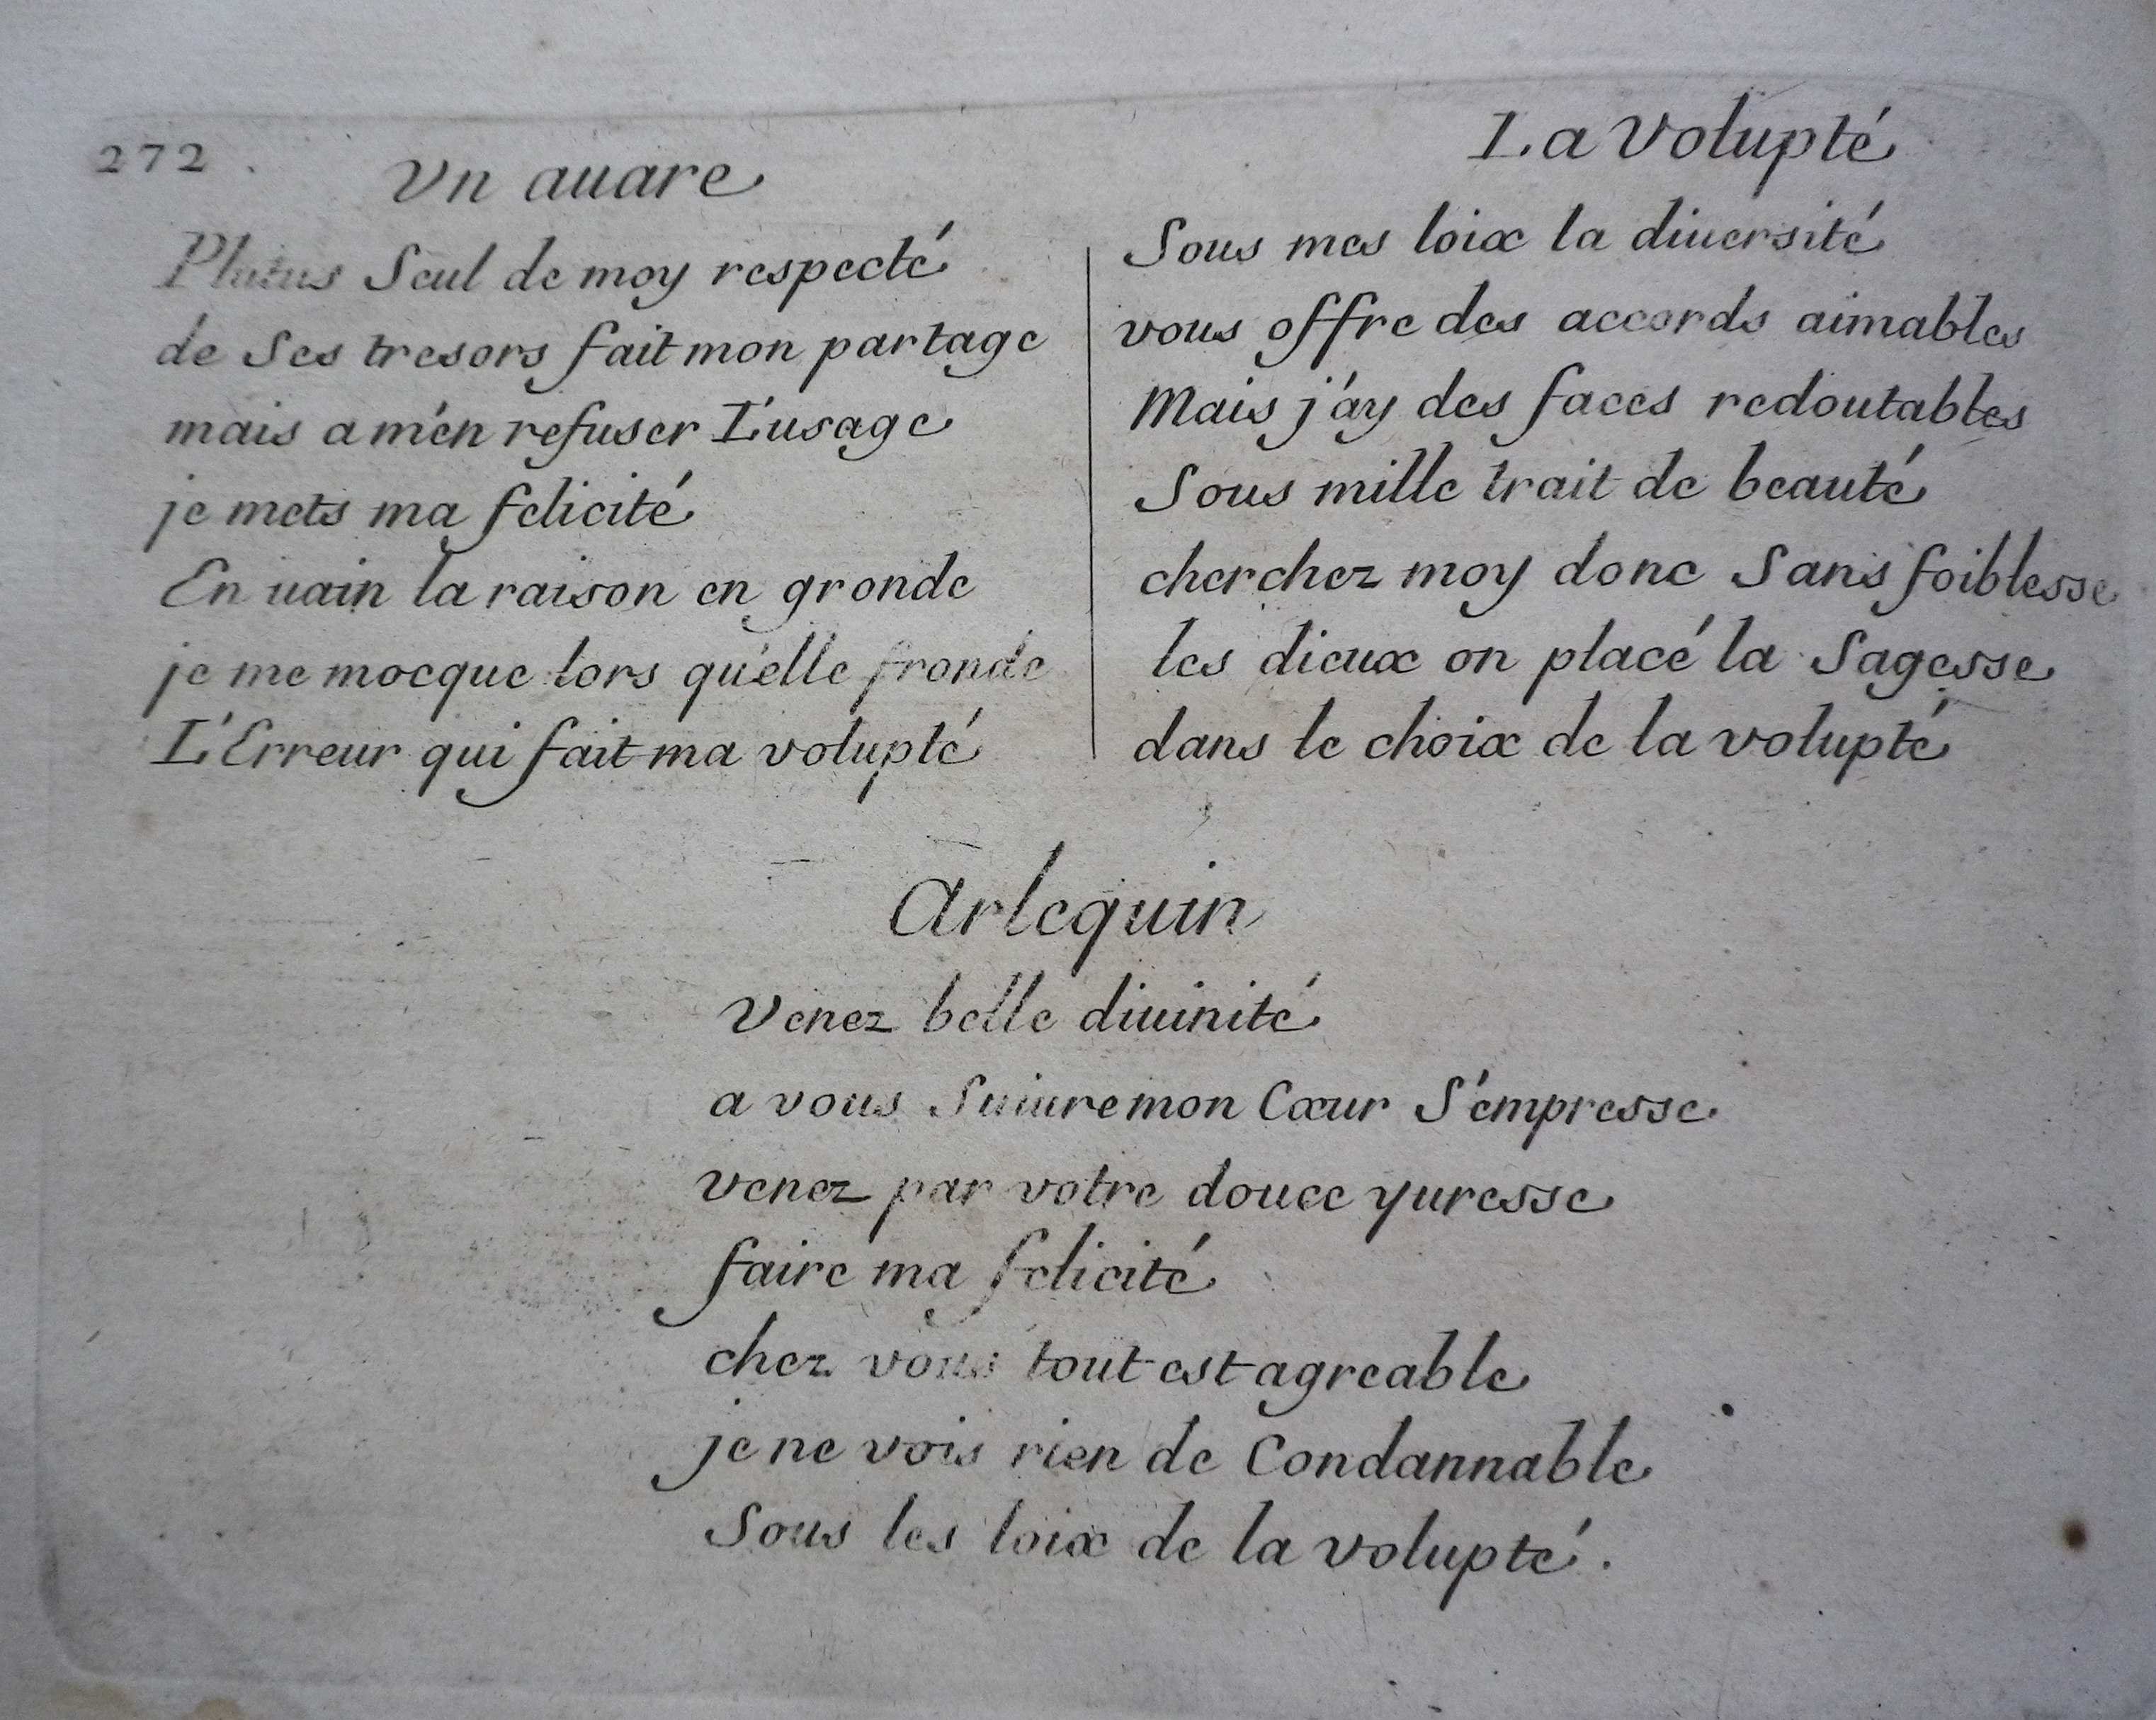 272.
Vn auare
Plutus Seul de moy respecté
de Ses tresors fait mon partage
mais a m'en refuser L'usage
je mets ma felicité
En uain la raison en gronde
je me mocque lors qu'elle fronde
L'Erreur qui fait ma volupté
La Volupté
Sous mes loix la diuersité
vous offre des accords aimables
Mais j'ay des faces redoutables
Sous mille trait de beauté
cherchez moy donc Sans foiblesse
les dieux on placé la Sagesse
dans le choix de la volupté
Arlequin
Venez belle diuinité
a vous Suiure mon Cœur S'empresse
venez par votre douce yuresse
faire ma felicité
chez vous tout est agreable
je ne vois rien de Condannable
Sous les loix de la volupté.